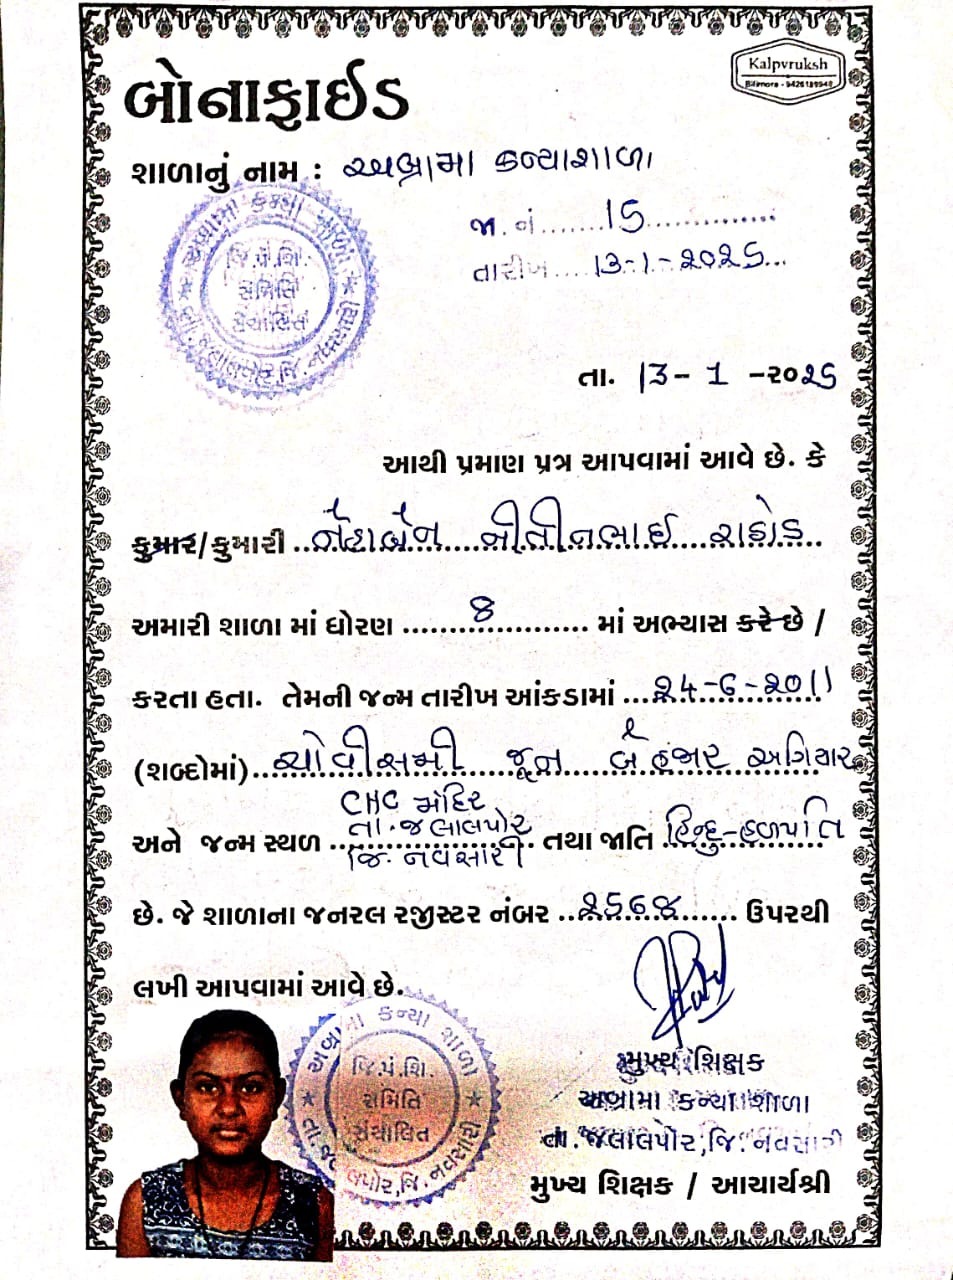 Kalpvruksh
Bilimora - 9426189948
બોનાફાઈડ
શાળાનું નામ : અબ્રામા કન્યાશાળા
અબ્રામા કન્યા શાળા
જિ.પં.શિ.
સમિતિ
સંચાલિત
તા.જલાલપોર,જિ.નવસારી
જા.નં.......15..............
તારીખ....13-1-૨૦૨5...
તા. 13-1-૨૦૨5
આથી પ્રમાણ પ્રત્ર આપવામાં આવે છે. કે
કુમાર/કુમારી ..નેહાબેન નીતીનભાઈ રાઠોડ..
અમારી શાળા માં ધોરણ .......8........... માં અભ્યાસ કરે છે /
કરતા હતા. તેમની જન્મ તારીખ આંકડામાં ...૨4-6-૨011
(શબ્દોમાં)..ચોવીસમી જૂન બે હજાર અગિયાર
CHC મંદિર
તા.જલાલપોર
અને જન્મ સ્થળ .................. તથા જાતિ .હિન્દુ-હળપતિ
જિ. નવસારી
છે. જે શાળાના જનરલ રજીસ્ટર નંબર ..૨5૬૪...... ઉપરથી
લખી આપવામાં આવે છે.
અબ્રામા કન્યા શાળા
જિ.પં.શિ.
સમિતિ
સંચાલિત
તા.જલાલપોર,જિ.નવસારી
મુખ્ય શિક્ષક
અબ્રામા કન્યા શાળા
તા.જલાલપોર,જિ.નવસારી
મુખ્ય શિક્ષક / આચાર્યશ્રી